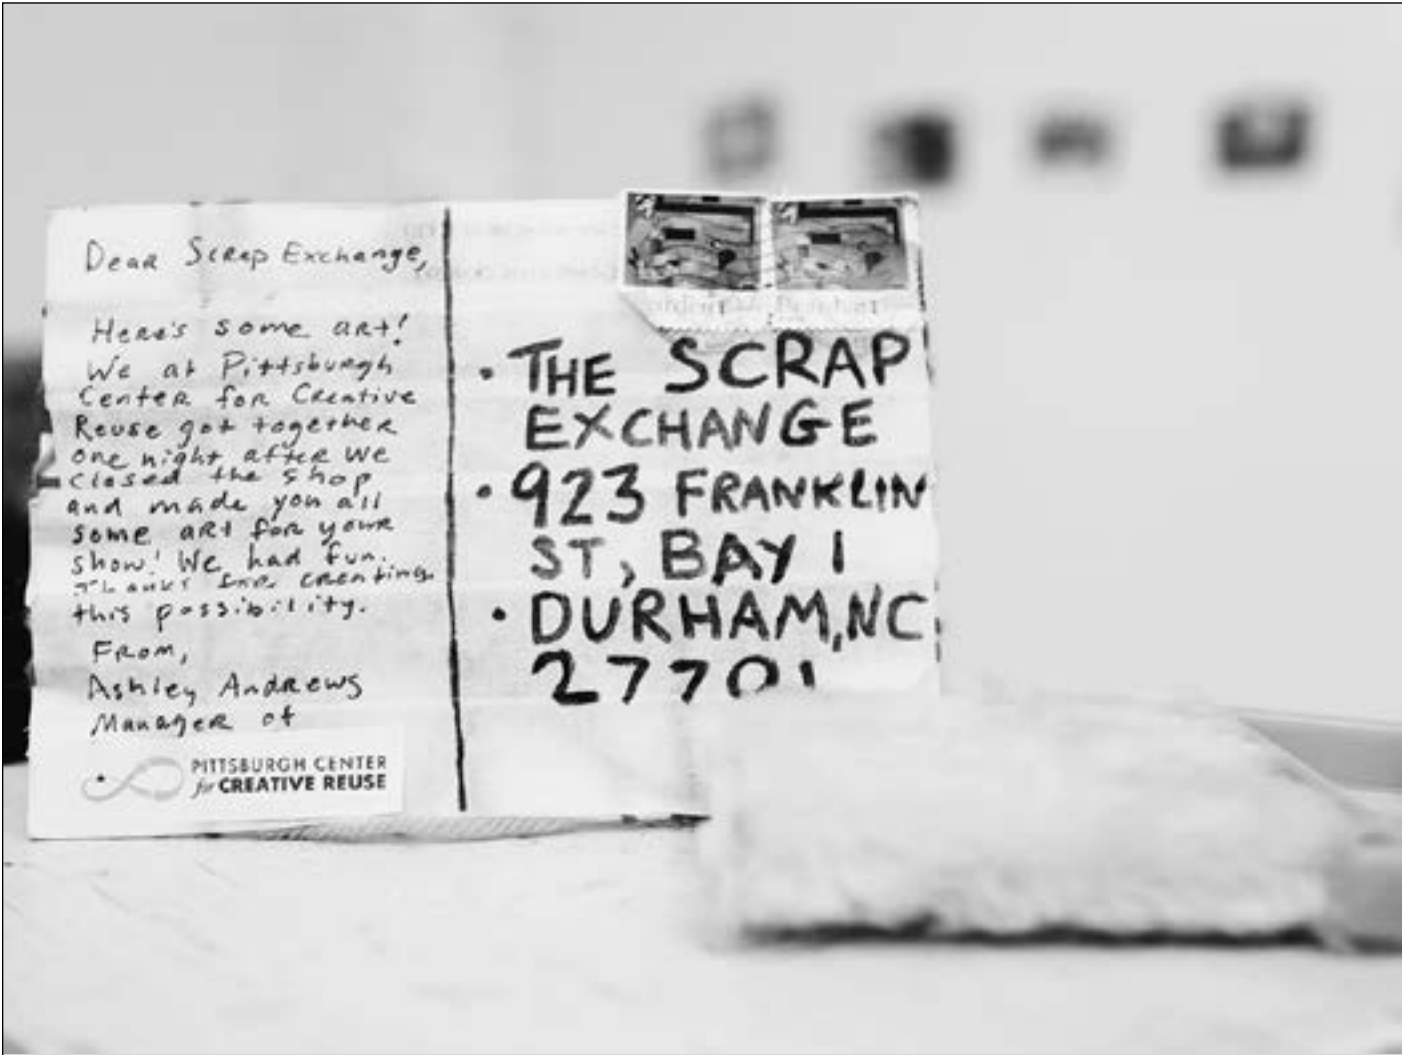 Dear Scrap Exchange,
Here's some art!
We at Pittsburgh
Center for Creative
Reuse got together
one night after we
closed the shop
and made you all
some art for your
show! We had fun.
Thanks for creating
this possibility.
From,
Ashley Andrews
Manager of
PITTSBURGH CENTER
for CREATIVE REUSE
• THE SCRAP
EXCHANGE
• 923 FRANKLIN
ST, BAY 1
• DURHAM, NC
27701